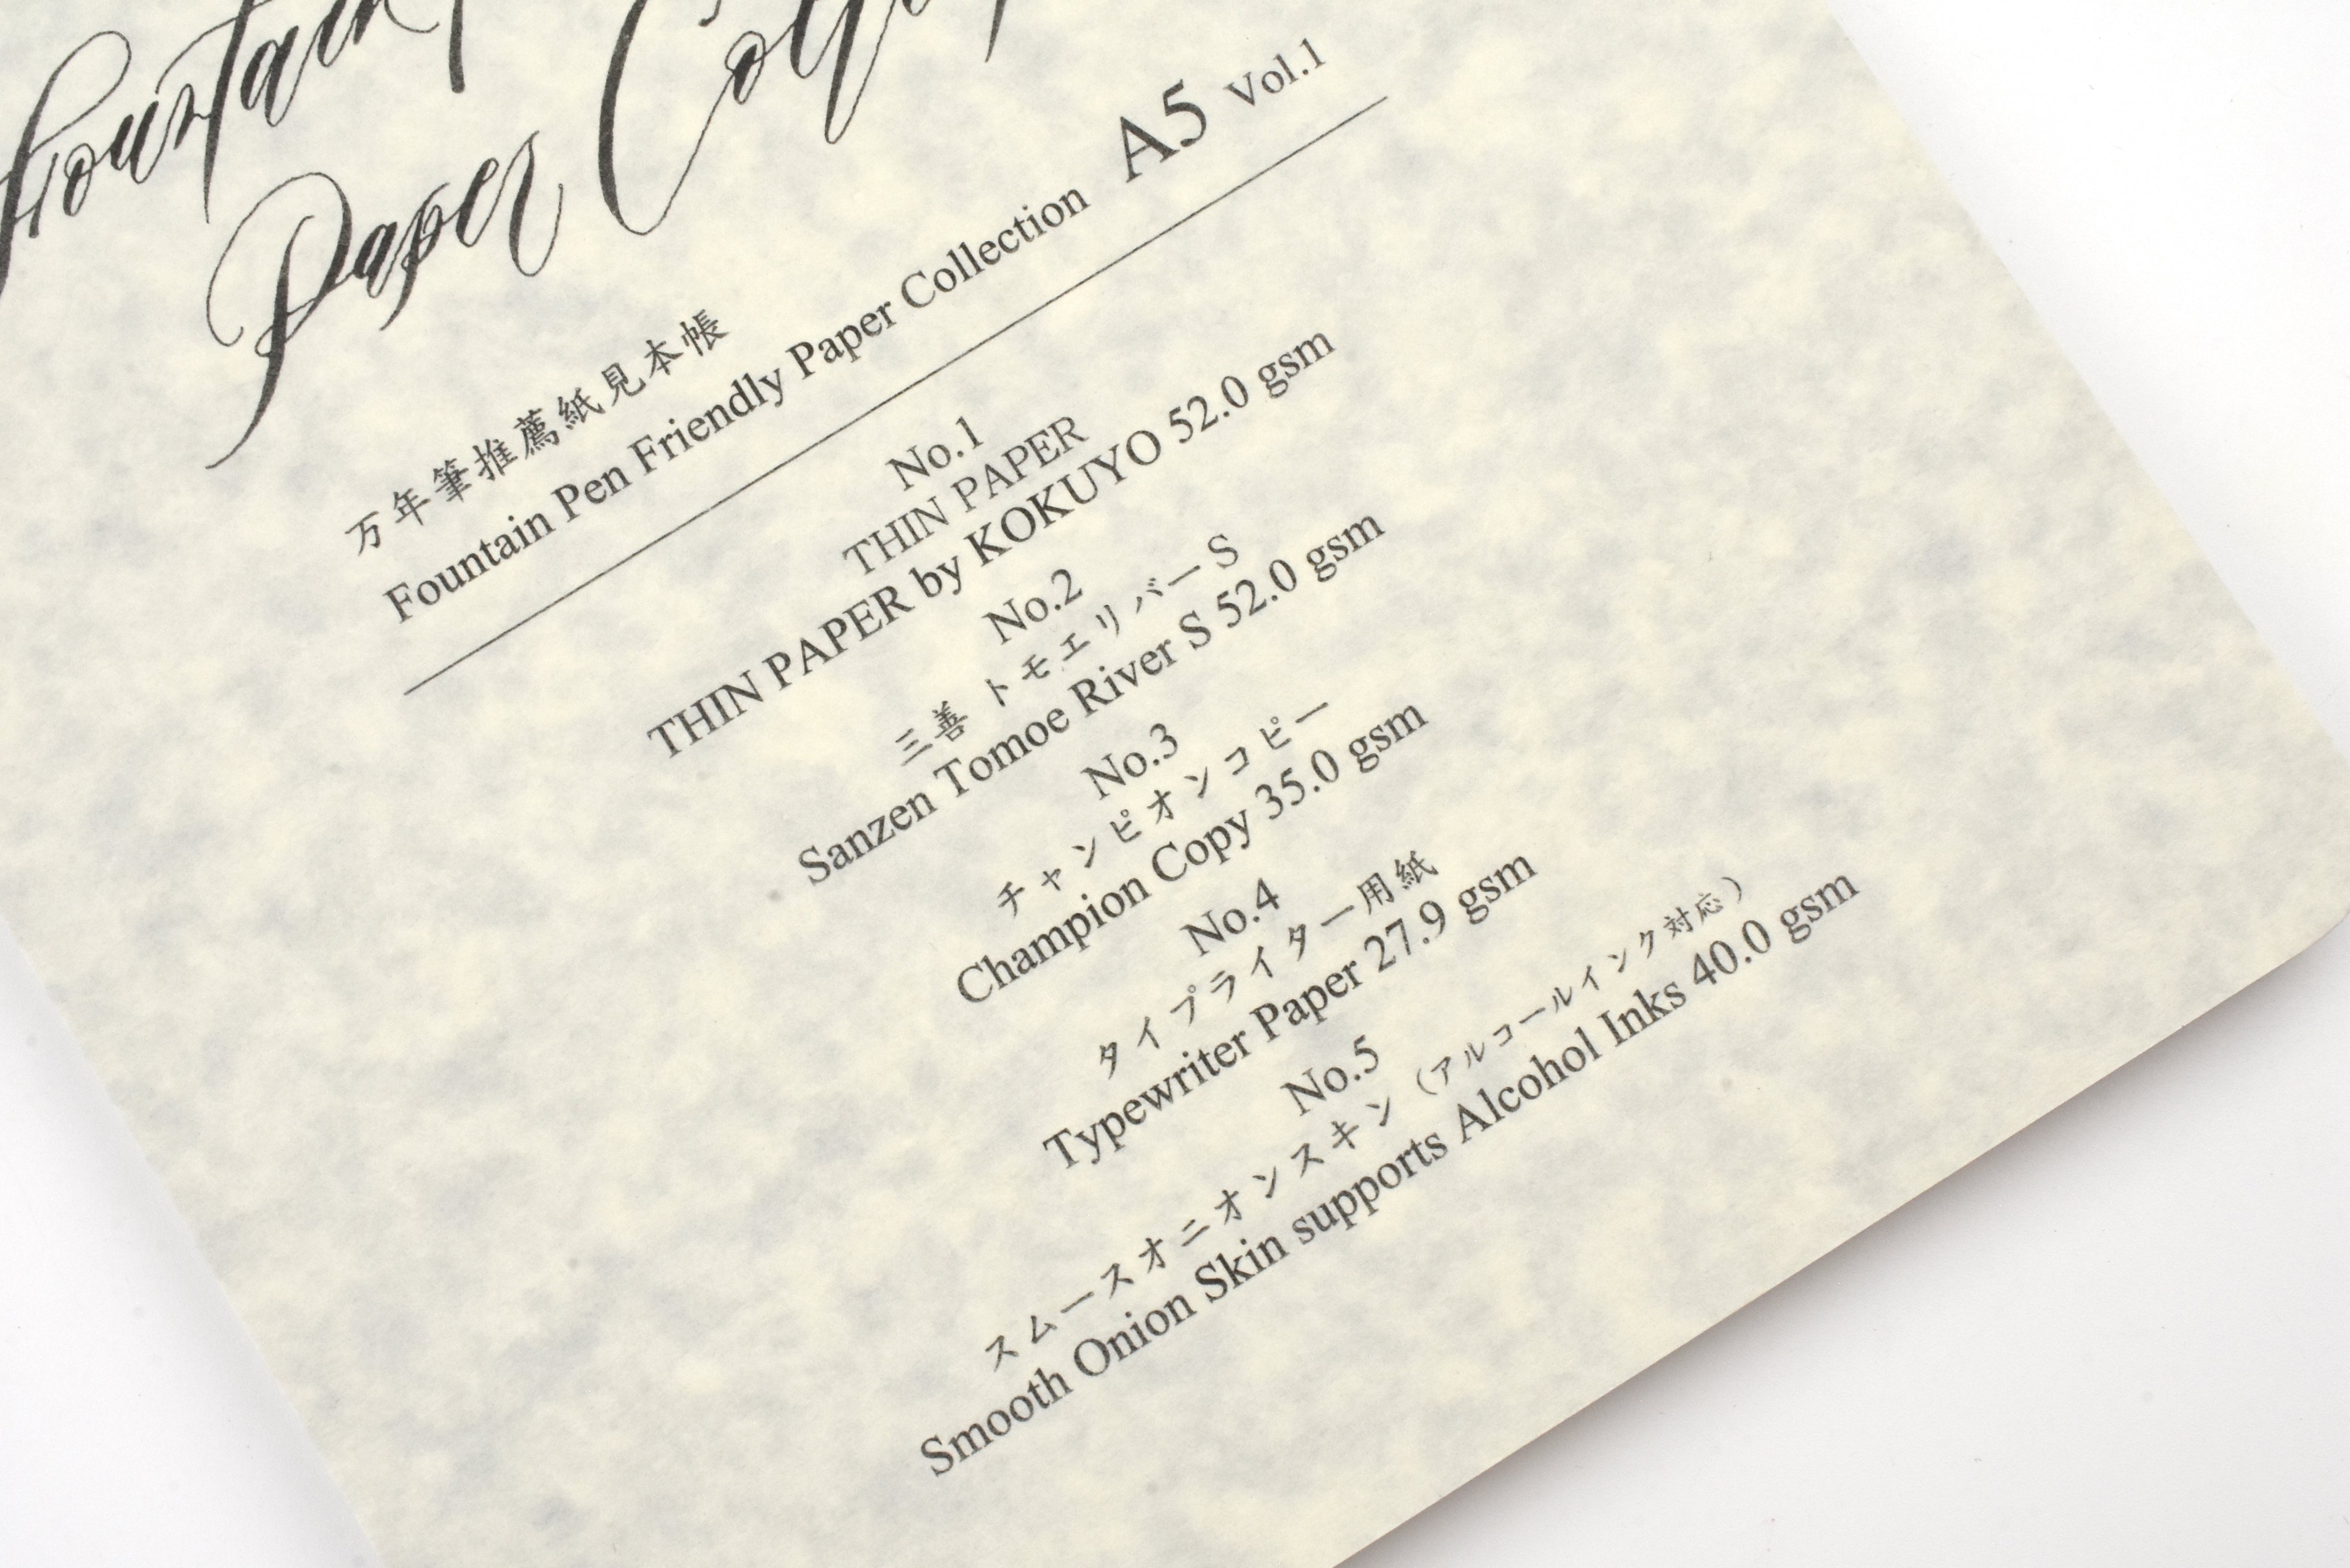 Fountain
Paper
万年筆推薦紙見本帳
Fountain Pen Friendly Paper Collection A5 Vol.1
No.1
THIN PAPER
THIN PAPER by KOKUYO 52.0 gsm
No.2
三善 トモエリバーS
Sanzen Tomoe River S 52.0 gsm
No.3
チャンピオンコピー
Champion Copy 35.0 gsm
No.4
タイプライター用紙
Typewriter Paper 27.9 gsm
No.5
スムースオニオンスキン（アルコールインク対応）
Smooth Onion Skin supports Alcohol Inks 40.0 gsm